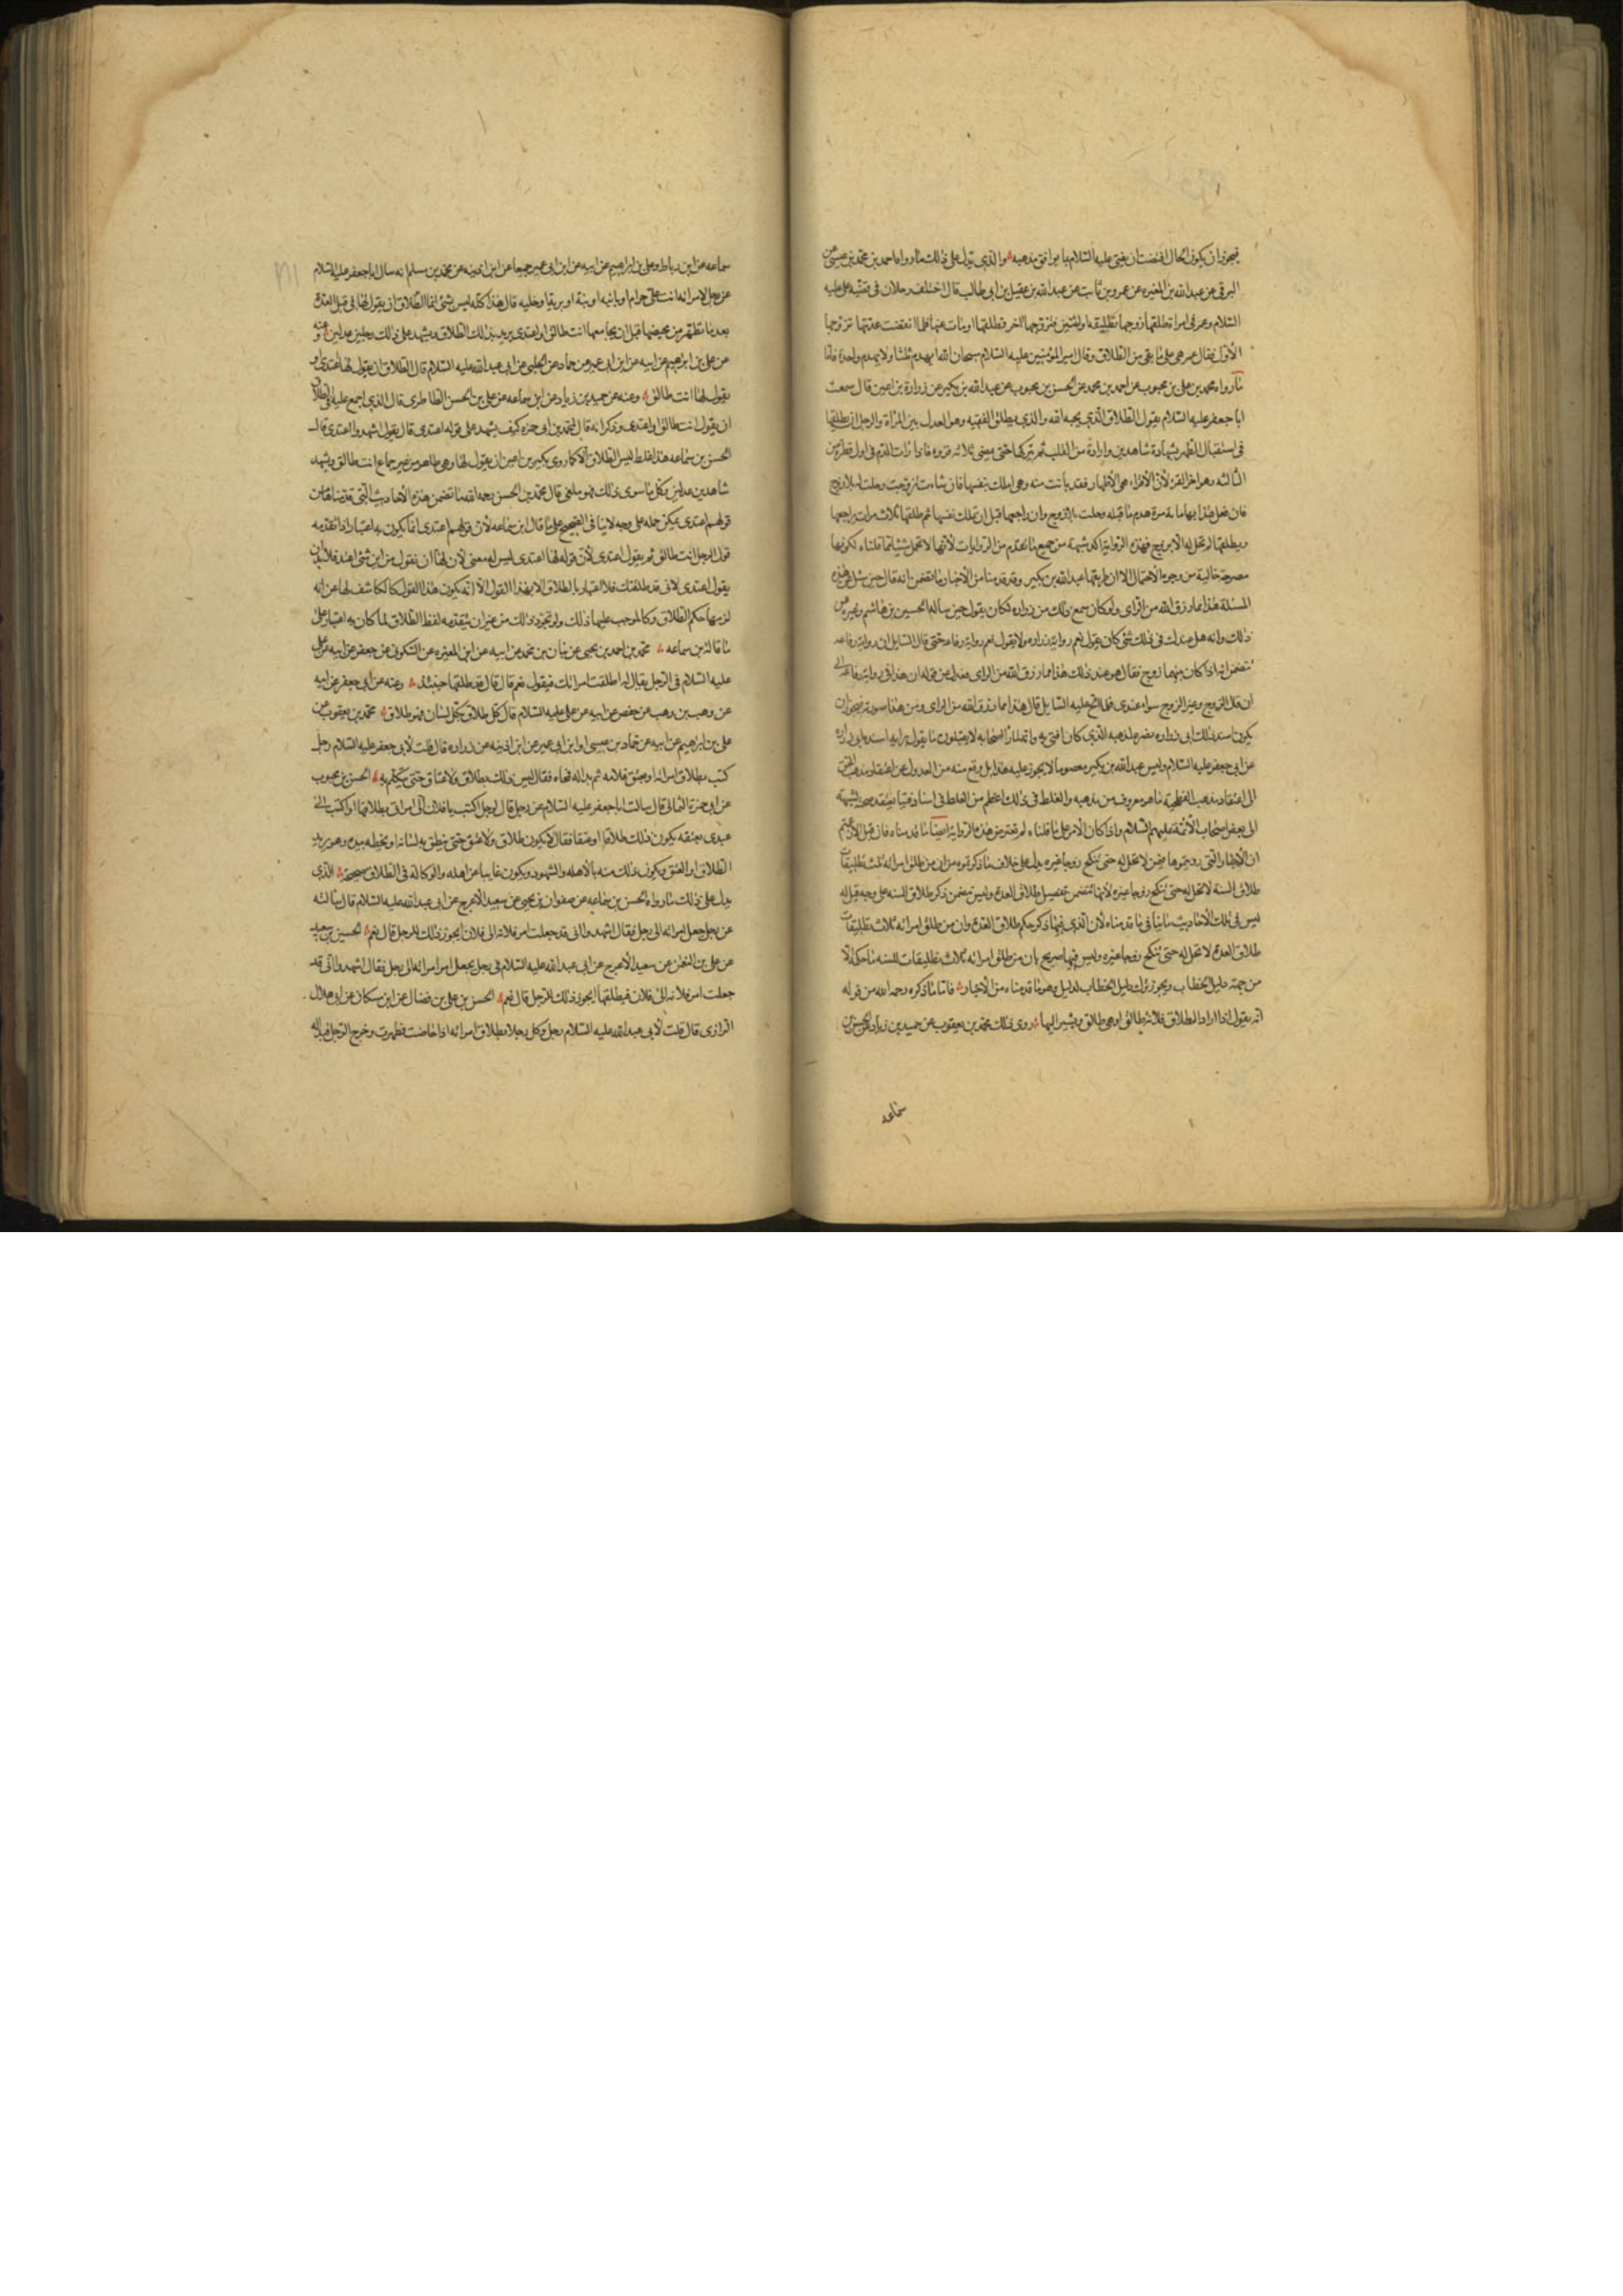 فيجوز ان يكون الحال اقتضت ان يفتي عليه السلام بما يوافق مذهبه والذي يدل على ذلك ما رواه احمد بن محمد بن عيسى عن
البرقي عن عبد الله بن المغيرة عن عمرو بن ثابت عن عبد الله بن عقيل بن ابي طالب قال اختلف رجلان في قضية علي عليه
السلام وعمر في امراة طلقها زوجها تطليقة او اثنتين فتزوجها اخر فطلقها او مات عنها فلما انقضت عدتها تزوجها
الاول فقال عمر هي على ما بقي من الطلاق وقال امير المؤمنين عليه السلام سبحان الله ايهدم ثلثا ولا يهدم واحدة فاما
ما رواه محمد بن علي بن محبوب عن احمد بن محمد عن الحسن بن محبوب عن عبد الله بن بكير عن زرارة بن اعين قال سمعت
ابا جعفر عليه السلام يقول الطلاق الذي يحبه الله والذي يطلق الفقيه وهو العدل بين المراة والرجل ان يطلقها
في استقبال الطهر بشهادة شاهدين وارادة من القلب ثم يتركها حتى يمضي ثلاثة قروء فاذا رات الدم في اول قطرة من
الثالثة وهو اخر القرء لان الاقراء هي الاطهار فقد بانت منه وهي املك بنفسها فان شاءت تزوجت وحلت له بلا زوج
فان فعل هذا بها مائة مرة هدم ما قبله وحلت بلا زوج وان راجعها قبل ان تملك نفسها ثم طلقها ثلاث مرات يراجعها
ويطلقها لم تحل له الا بزوج فهذه الرواية اكد شبهة من جميع ما تقدم من الروايات لانها لا تحتمل شيئا مما قلناه لكونها
مصرحة خالية من وجوه الاحتمال الا ان طريقها عبد الله بن بكير وقد قدمنا من الاخبار ما تضمن انه قال حين سئل عن هذه
المسئلة هذا مما رزق الله من الراي ولو كان سمع ذلك من زراره لكان يقول حين ساله الحسين بن هاشم وغيره عن
ذلك وانه هل عندك في ذلك شئ كان يقول نعم رواية زراره ولا يقول نعم رواية رفاعه حتى قال السايل ان رواية رفاعه
تتضمن انه اذا كان بينهما زوج فقال هو عند ذلك هذا مما رزق الله من الراي فعدل عن قوله ان هذا في رواية رفاعة الى
ان قال الزوج وغير الزوج سواء عندي فلما الح عليه السايل قال هذا مما رزق الله من الراي ومن هذا صورته فيجوز ان
يكون اسند ذلك الى زراره نصرة لمذهبه الذي كان افتى به وانه لما راى اصحابه لا يقبلون ما يقوله برايه اسنده الى من رواه
عن ابي جعفر عليه السلام وليس عبد الله بن بكير معصوما لا يجوز عليه هذا بل وقع منه من العدول عن اعتقاد مذهب الحق
الى اعتقاد مذهب الفطحية ما هو معروف من مذهبه والغلط في ذلك اعظم من الغلط في اسناد فتيا يعتقد صحته لشبهة
الى بعض اصحاب الائمة عليهم السلام واذا كان الامر على ما قلناه لم تعترض هذه الرواية ايضا ما قدمناه فان قيل الا زعمتم
ان الاخبار التي رويتموها فيمن لا تحل له حتى تنكح زوجا غيره يدل على خلاف ما ذكرتموه من ان من طلق امراته ثلث تطليقات
طلاق السنة لا تحل له حتى تنكح زوجا غيره لانها تتضمن تفصيل طلاق العدة وليس يتضمن ذكر طلاق السنه على وجه قيل له
ليس في تلك الاحاديث ما ينافي ما قدمناه لان الذي فيها ذكر حكم طلاق العدة وان من طلق امراته ثلاث تطليقات
طلاق العدة لا تحل له حتى تنكح زوجا غيره وليس فيها صريح بان من طلق امراته ثلاث تطليقات للسنه ما حكمه الا
من جهة دليل الخطاب ويجوز ترك دليل الخطاب لدليل وهو ما قدمناه من الاخبار فاما ما ذكره رحمه الله من قوله
انه يقول اذا اراد الطلاق فلانة طالق او هي طالق ويشير اليها روى ذلك محمد بن يعقوب عن حميد بن زياد عن الحسن بن
سماعه
سماعه عن ابن رباط وعلي بن ابراهيم عن ابيه عن ابن ابي عمير جميعا عن ابن اذينه عن محمد بن مسلم انه سال ابا جعفر عليه السلام
عن رجل قال لامراته انت علي حرام او باينه او بتة او برية او خليه قال هذا كله ليس بشئ انما الطلاق ان يقول لها في قبل العدة
بعد ما تطهر من محيضها قبل ان يجامعها انت طالق او اعتدي يريد بذلك الطلاق ويشهد على ذلك رجلين عدلين وعنه
عن علي بن ابراهيم عن ابيه عن ابن ابي عمير عن حماد عن الحلبي عن ابي عبد الله عليه السلام قال الطلاق ان يقول لها اعتدي او
يقول لها انت طالق وعنه عن حميد بن زياد عن ابن سماعه عن علي بن الحسن الطاطري قال الذي اجمع عليه في الطلاق
ان يقول انت طالق او اعتدي وذكر انه قال لمحمد بن ابي حمزه كيف يشهد على قوله اعتدي قال يقول اشهدوا اعتدي قال
الحسن بن سماعه هذا غلط ليس الطلاق الا كما روى بكير بن اعين ان يقول لها وهي طاهر من غير جماع انت طالق ويشهد
شاهدين عدلين وكل ما سوى ذلك فهو ملغى قال محمد بن الحسن رحمه الله ما تضمن هذه الاحاديث التي قدمناها من
قولهم اعتدي يمكن حمله على وجه لا ينافي الصحيح على ما قال ابن سماعه لان قولهم اعتدي انما يكون به اعتبار اذا تقدمه
قول الرجل انت طالق ثم يقول اعتدي لان قوله لها اعتدي ليس له معنى لان لها ان تقول من اي شئ اعتد فلا بد ان
يقول اعتدي لاني قد طلقتك فلا اعتبار بالطلاق لا بهذا القول الا انه يكون هذا القول كالكاشف لها عن انه
لزمها حكم الطلاق وكالموجب عليها ذلك ولو تجرد ذلك من غير ان يتقدمه لفظ الطلاق لما كان به اعتبار على
ما قاله بن سماعه محمد بن احمد بن يحيى عن بنان بن محمد عن ابيه عن ابن المغيره عن السكوني عن جعفر عن ابيه عن علي
عليه السلام في الرجل يقال له اطلقت امراتك فيقول نعم قال قال قد طلقها حينئذ وعنه عن ابي جعفر عن ابيه
عن وهب بن وهب عن جعفر عن ابيه عن علي عليه السلام قال كل طلاق بكل لسان فهو طلاق محمد بن يعقوب عن
علي بن ابراهيم عن ابيه عن حماد بن عيسى او ابن ابي عمير عن ابن اذينه عن زراره قال قلت لابي جعفر عليه السلام رجل
كتب بطلاق امراته او بعتق غلامه ثم بدا له فمحاه فقال ليس ذلك بطلاق ولا عتاق حتى يتكلم به الحسن بن محبوب
عن ابي حمزة الثمالي قال سالت ابا جعفر عليه السلام عن رجل قال لرجل اكتب يا فلان الى امراتي بطلاقها او اكتب الى
عبدي بعتقه يكون ذلك طلاقا او عتقا فقال لا يكون طلاق ولا عتق حتى ينطق به لسانه او يخطه بيده وهو يريد
الطلاق او العتق ويكون ذلك منه بالاهلة والشهود ويكون غايبا عن اهله والوكالة في الطلاق صحيحة الذي
يدل على ذلك ما رواه الحسن بن سماعه عن صفوان بن يحيى عن سعيد الاعرج عن ابي عبد الله عليه السلام قال سالته
عن رجل جعل امراته الى رجل فقال اشهدوا اني قد جعلت امر فلانة الى فلان ايجوز ذلك للرجل قال نعم الحسين بن سعيد
عن علي بن النعمان عن سعيد الاعرج عن ابي عبد الله عليه السلام في رجل يجعل امر امراته الى رجل فقال اشهدوا اني قد
جعلت امر فلانة الى فلان فيطلقها ايجوز ذلك للرجل قال نعم الحسن بن علي بن فضال عن ابن مسكان عن ابي هلال
الرازي قال قلت لابي عبد الله عليه السلام رجل وكل رجلا بطلاق امراته اذا حاضت وطهرت وخرج الرجل فبدا له